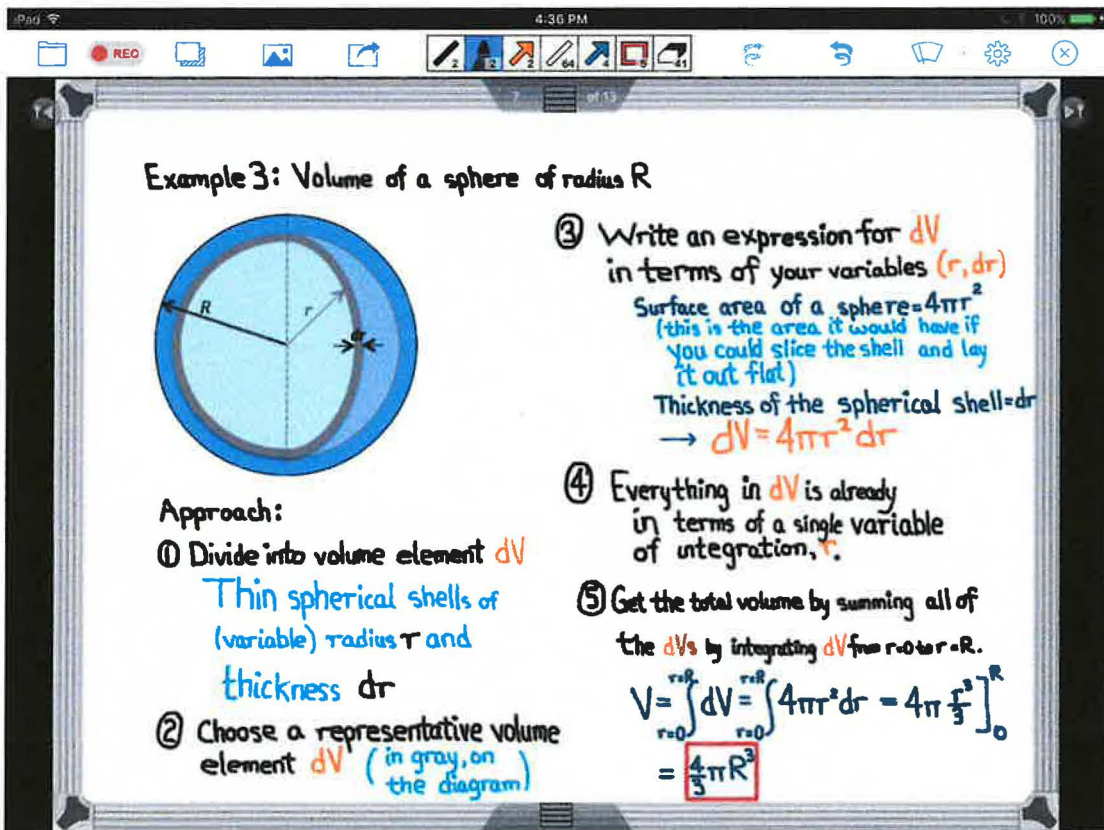 iPad
4:36 PM
100%
REC
2
2
2
64
4
5
41
7 of 13
Example 3: Volume of a sphere of radius R
R
r
dr
Approach:
① Divide into volume element dV
Thin spherical shells of
(variable) radius r and
thickness dr
② Choose a representative volume
element dV (in gray, on
the diagram)
③ Write an expression for dV
in terms of your variables (r, dr)
Surface area of a sphere = 4πr²
(this is the area it would have if
you could slice the shell and lay
it out flat)
Thickness of the spherical shell = dr
→ dV = 4πr² dr
④ Everything in dV is already
in terms of a single variable
of integration, r.
⑤ Get the total volume by summing all of
the dVs by integrating dV from r=0 to r=R.
V = ∫_{r=0}^{r=R} dV = ∫_{r=0}^{r=R} 4πr² dr = 4π r³/3 ]_0^R
= 4/3 πR³